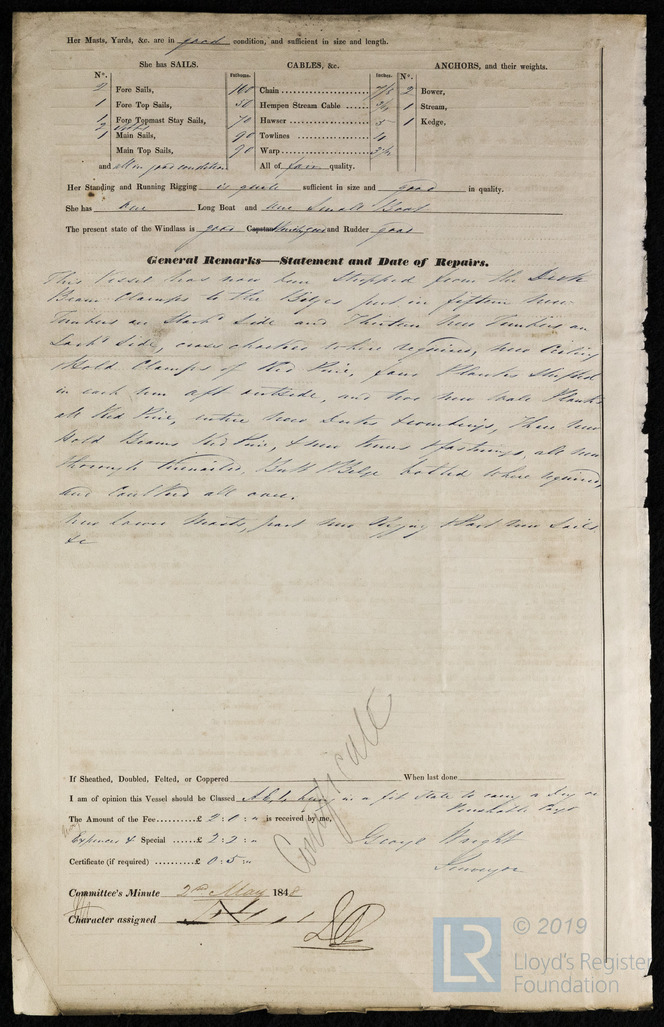 Her Masts, Yards, &c. are in good condition, and sufficient in size and length.
She has SAILS. CABLES, &c. ANCHORS, and their weights.
N°. Fathoms. Inches. N°.
2 Fore Sails, 160 Chain 7/8 2 Bower,
1 Fore Top Sails, 50 Hempen Stream Cable 1 Stream,
1 Fore Topmast Stay Sails, 70 Hawser 5 1 Kedge,
2
1 Main Sails, 90 Towlines
Main Top Sails, 90 Warp
and all in good condition All of fair quality.
Her Standing and Running Rigging is quite sufficient in size and good in quality.
She has one Long Boat and one Small Boat
The present state of the Windlass is good Capstan Winch good and Rudder good
General Remarks—Statement and Date of Repairs.
This Vessel has now been Stripped from the Deck
Beam Clamps to the Bilges put in fifteen new
Timbers on Starb Side and Thirteen New Timbers on
Larb Side, where required, new Ceiling
Hold Clamps of Red Pine, four Planks Shifted
in each aft outside, and two new Planks
all Red Pine, entire New Decks Three New
Hold Beams Red Pine, & new Knees & fastenings, all new
through Treenailed, Butt & Bilge bolted where required,
and Caulked all over.
New Lower Masts, part new Rigging & Part New Sails
&c
If Sheathed, Doubled, Felted, or Coppered When last done
I am of opinion this Vessel should be Classed being in a fit State to carry a Dry or
Perishable Cargo
The Amount of the Fee £ 2:0:" is received by me,
Expences & Special £ 2:2:"
George Wright
Certificate (if required) £ 0:5:"
Surveyor
Certificate
Committee's Minute 2nd May 1848
Character assigned
© 2019
LR
Lloyd's Register
Foundation